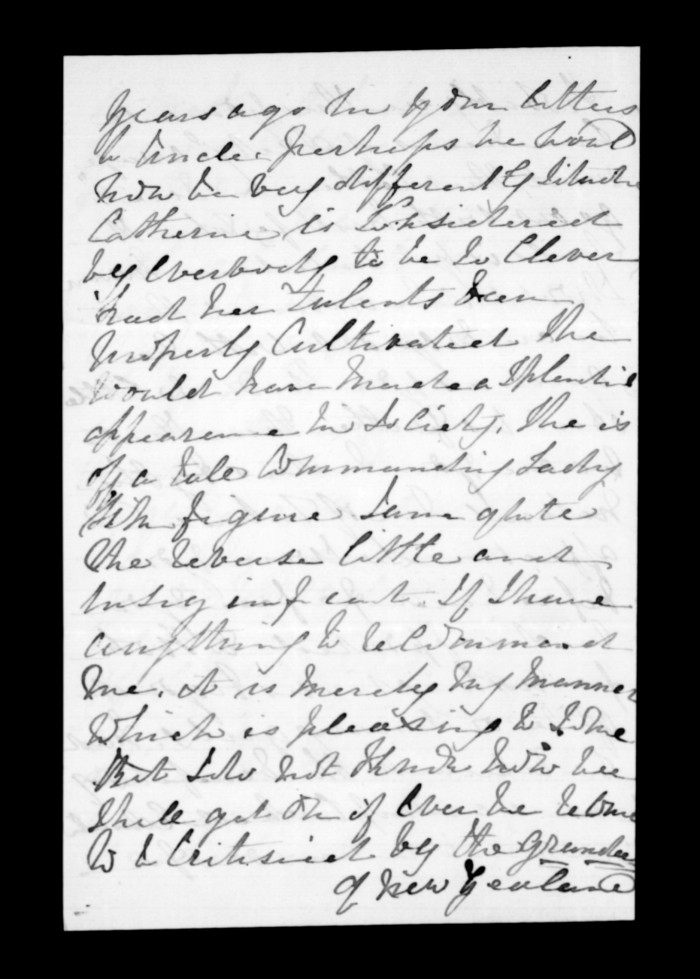 years ago in your letters
to Uncle. perhaps we would
now be very differently situated
Catherine is Considered
by Everbody to be so Clever
had her Talents been
properly Cultivated She
would have made a Splendid
appearance in Society. She is
of a tale Commanding Lady
like figure I am quite
the reverse little and
insignificant. If I have
anything to recommend
me. it is merely my manner
which is pleasing to Some
But I do not think how we
shall get on if Ever we Come
to be Critisised by the Grandees
of New Zealand